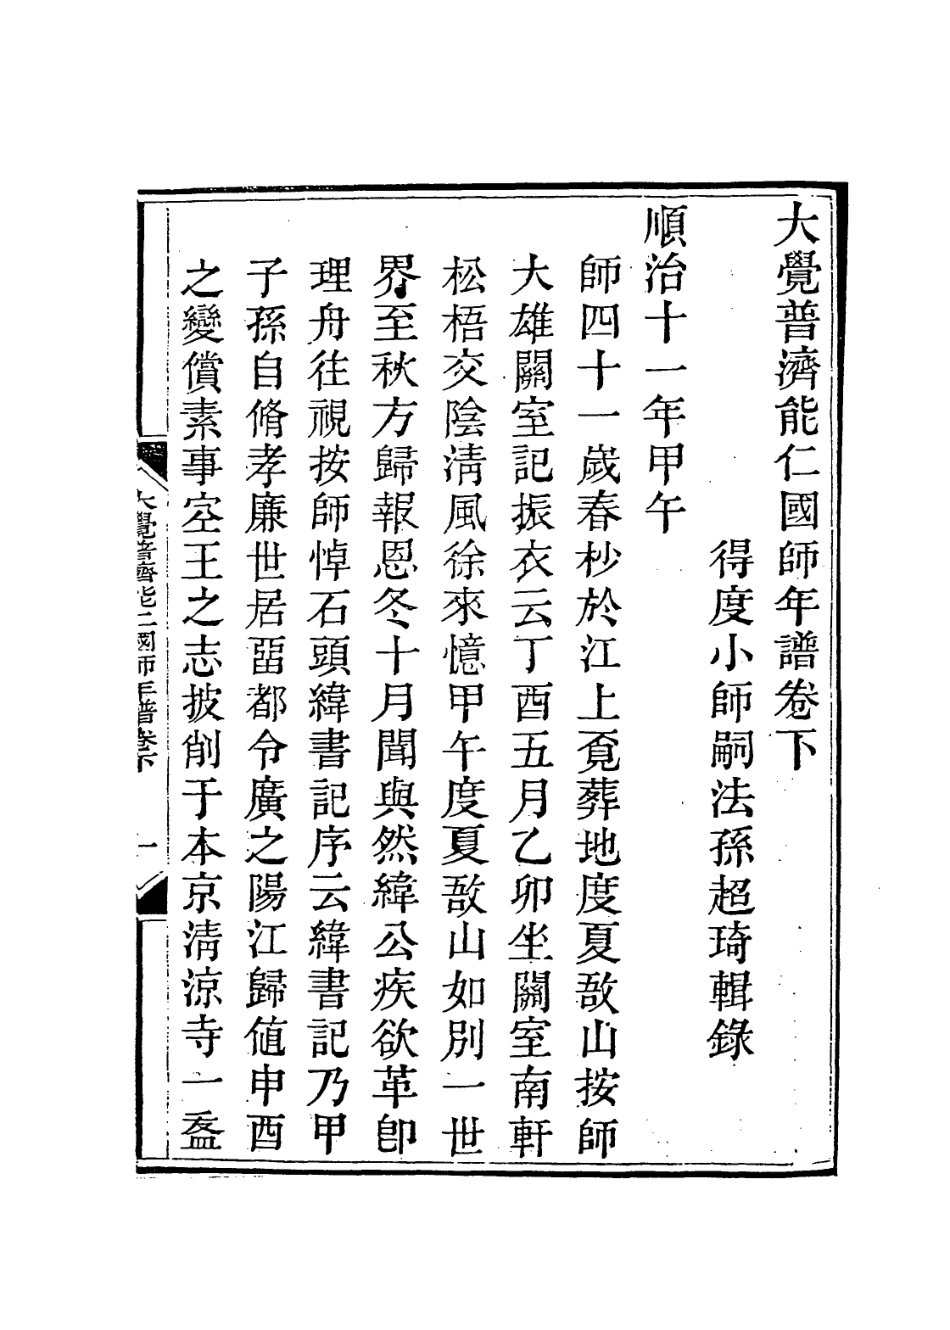 大覺普濟能仁國師年譜卷下
得度小師嗣法孫超琦輯錄
順治十一年甲午
師四十一歲春杪於江上覔葬地度夏敔山按師
大雄關室記振衣云丁酉五月乙卯坐關室南軒
松梧交陰淸風徐來憶甲午度夏敔山如別一世
界至秋方歸報恩冬十月聞與然緯公疾欲革卽
理舟往視按師悼石頭緯書記序云緯書記乃甲
子孫自脩孝廉世居畱都令廣之陽江歸値申酉
之變償素事空王之志披削于本京淸涼寺一盋
大覺普濟能仁國師年譜卷下
一